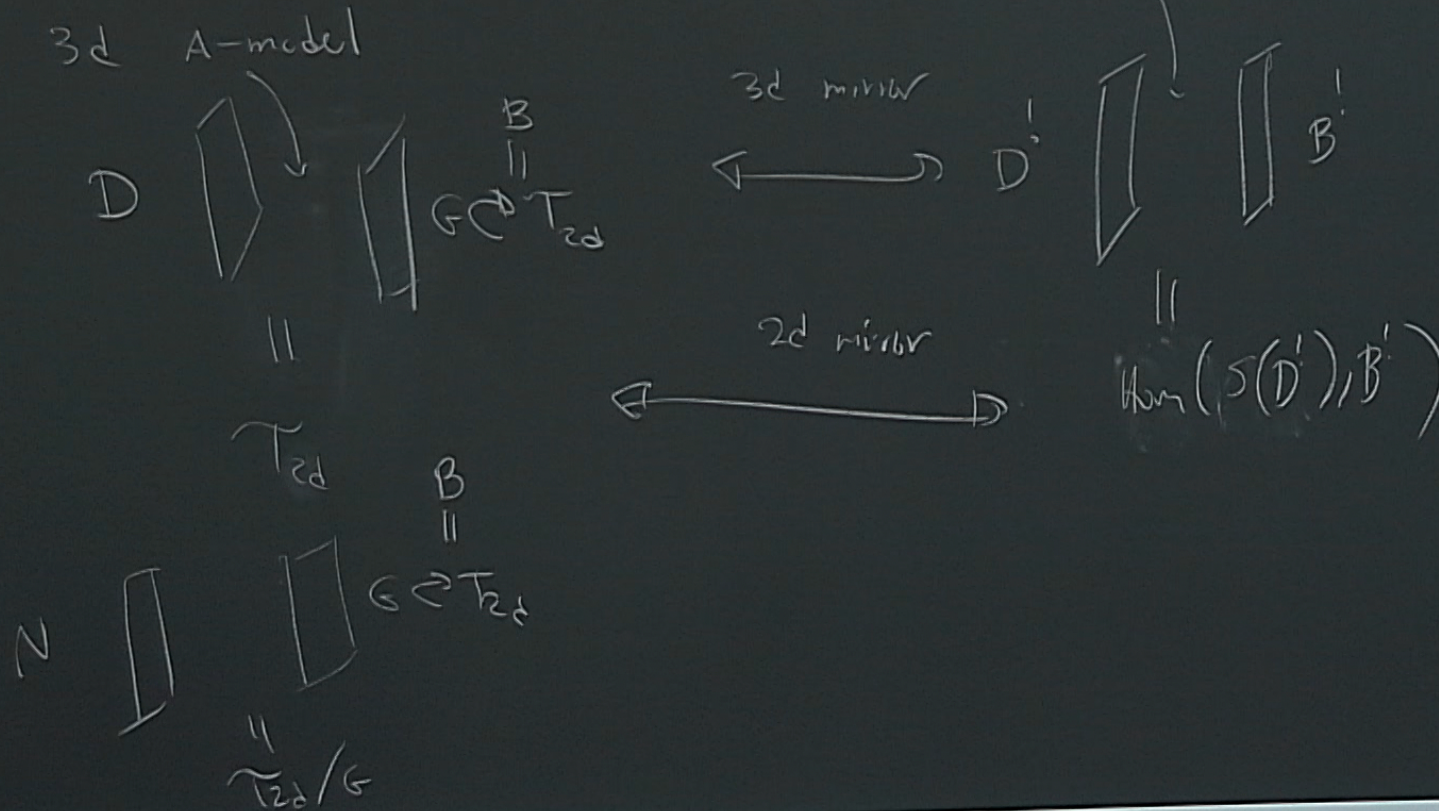 3d A-model
D
B
||
G ⊂ T_2d
3d mirror
D^!
B^!
||
T_2d
2d mirror
||
Hom(S(D^!), B^!)
N
B
||
G ⊂ T_2d
||
T_2d/G